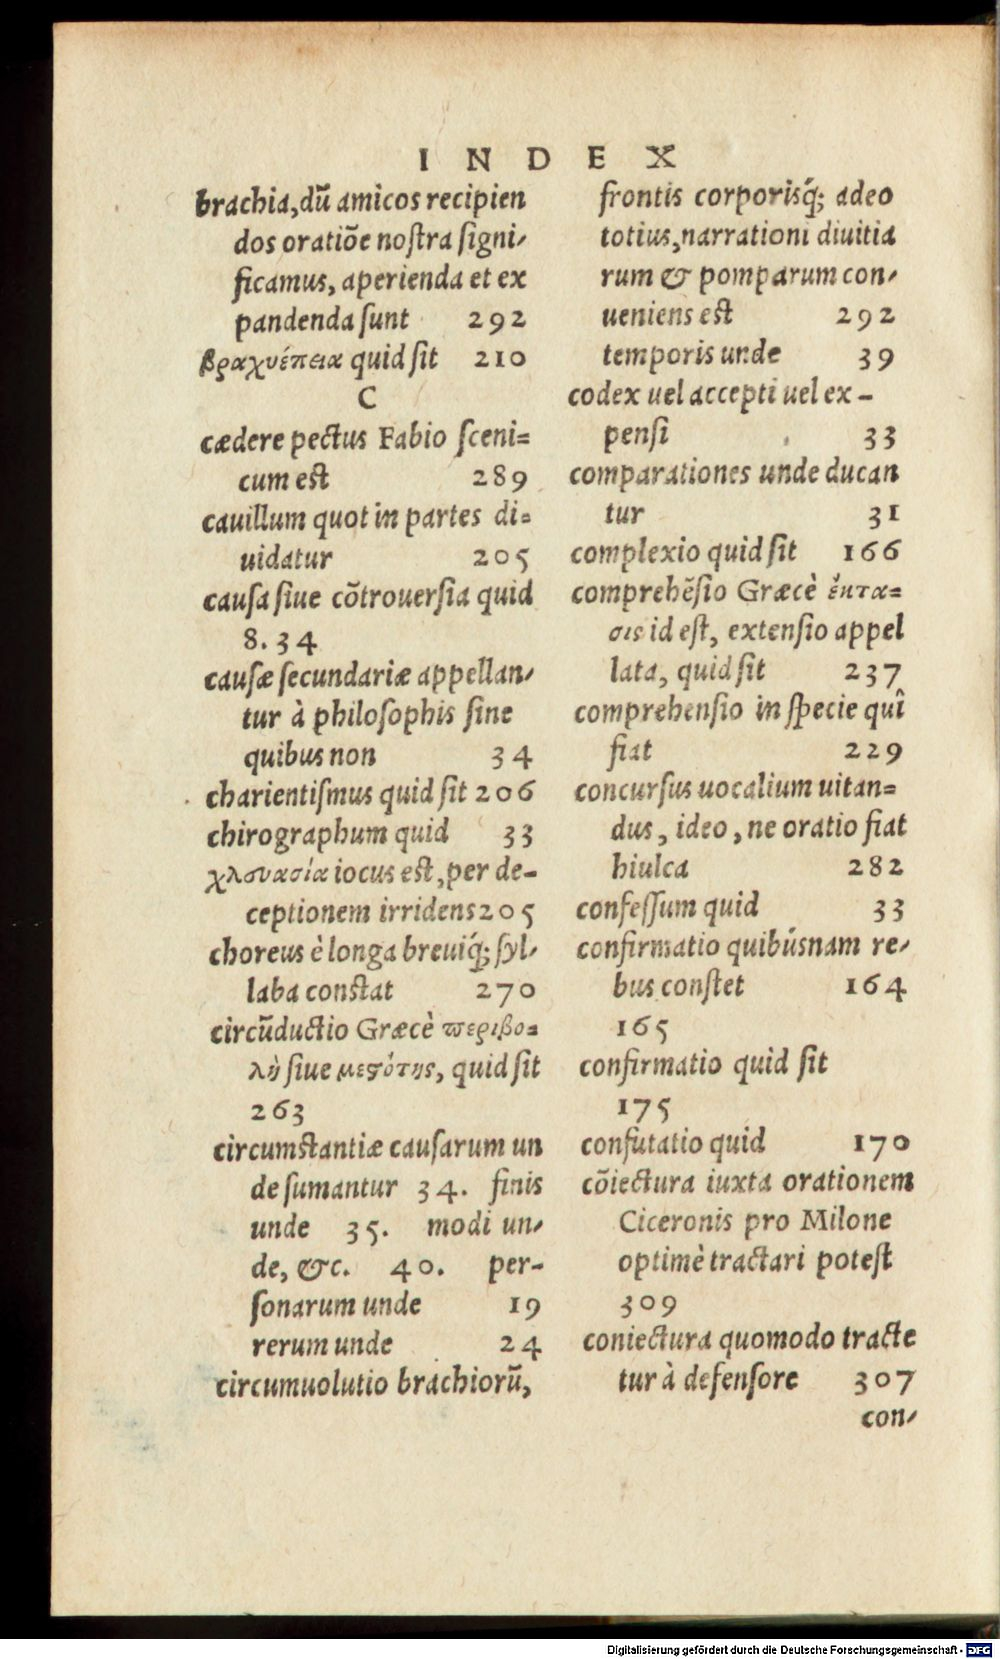 INDEX
brachia, dũ amicos recipien
dos oratiõe noſtra ſigni-
ficamus, aperienda et ex
pandenda ſunt 292
βραχυέπεια quid ſit 210
C
cædere pectus Fabio ſceni=
cum eſt 289
cauillum quot in partes di=
uidatur 205
cauſa ſiue cõtrouerſia quid
8. 34
cauſæ ſecundariæ appellan-
tur à philoſophis ſine
quibus non 34
charientiſmus quid ſit 206
chirographum quid 33
χλευασία iocus eſt, per de-
ceptionem irridens 205
choreus è longa breuiq́; ſyl-
laba conſtat 270
circũductio Græcè περιβο=
λὴ ſiue μεστότης, quid ſit
263
circumſtantiæ cauſarum un
de ſumantur 34. finis
unde 35. modi un-
de, &c. 40. per-
ſonarum unde 19
rerum unde 24
circumuolutio brachiorũ,
frontis corporisq́; adeo
totius, narrationi diuitia
rum & pomparum con-
ueniens eſt 292
temporis unde 39
codex uel accepti uel ex-
penſi 33
comparationes unde ducan
tur 31
complexio quid ſit 166
comprehẽſio Græcè ἔκτα=
σις id eſt, extenſio appel
lata, quid ſit 237
comprehenſio in ſpecie quî
fiat 229
concurſus uocalium uitan=
dus, ideo, ne oratio fiat
hiulca 282
confeſſum quid 33
confirmatio quibúsnam re-
bus conſtet 164
165
confirmatio quid ſit
175
confutatio quid 170
cõiectura iuxta orationem
Ciceronis pro Milone
optimè tractari poteſt
309
coniectura quomodo tracte
tur à defenſore 307
con-
Digitalisierung gefördert durch die Deutsche Forschungsgemeinschaft - DFG